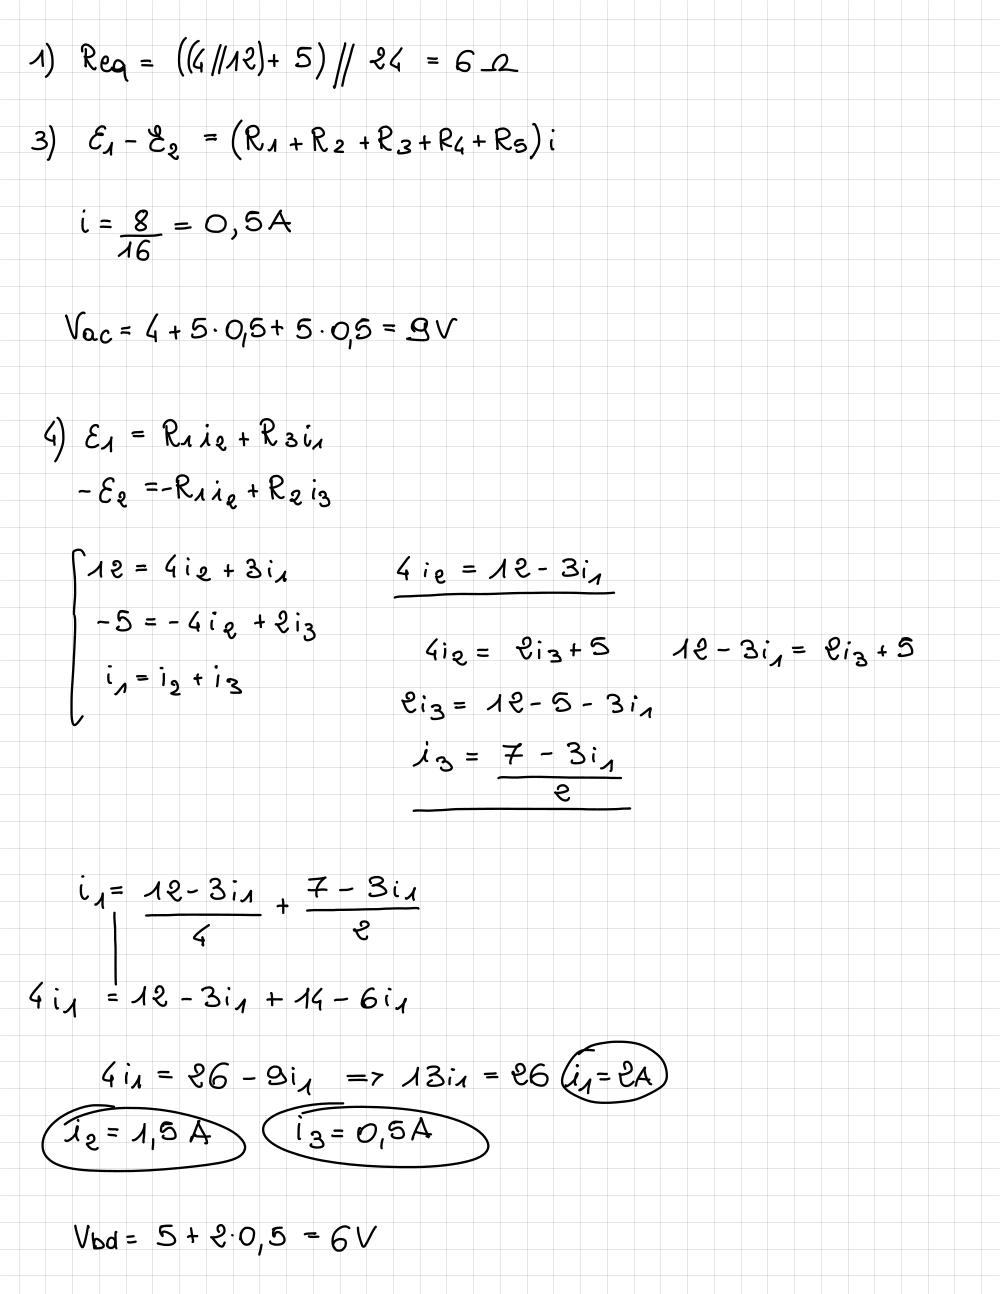 1) Req = ((4//12)+ 5) // 24 = 6 Ω
3) ε1 - ε2 = (R1 + R2 + R3 + R4 + R5) i
i = 8/16 = 0,5 A
Vac = 4 + 5·0,5 + 5·0,5 = 9V
4) ε1 = R1 i2 + R3 i1
-ε2 = -R1 i2 + R2 i3
12 = 4i2 + 3i1 4i2 = 12 - 3i1
-5 = -4i2 + 2i3
4i2 = 2i3 + 5 12 - 3i1 = 2i3 + 5
i1 = i2 + i3
2i3 = 12 - 5 - 3i1
i3 = 7 - 3i1 / 2
i1 = 12 - 3i1 / 4 + 7 - 3i1 / 2
4i1 = 12 - 3i1 + 14 - 6i1
4i1 = 26 - 9i1 => 13i1 = 26 i1 = 2A
i2 = 1,5 A i3 = 0,5 A
Vbd = 5 + 2·0,5 = 6V